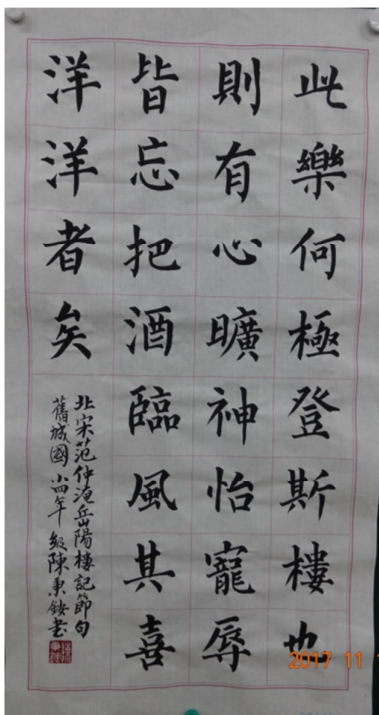 此樂何極登斯樓也
則有心曠神怡寵辱
皆忘把酒臨風其喜
洋洋者矣
北宋范仲淹岳陽樓記節句
舊城國小四年級陳秉
書
2017 11